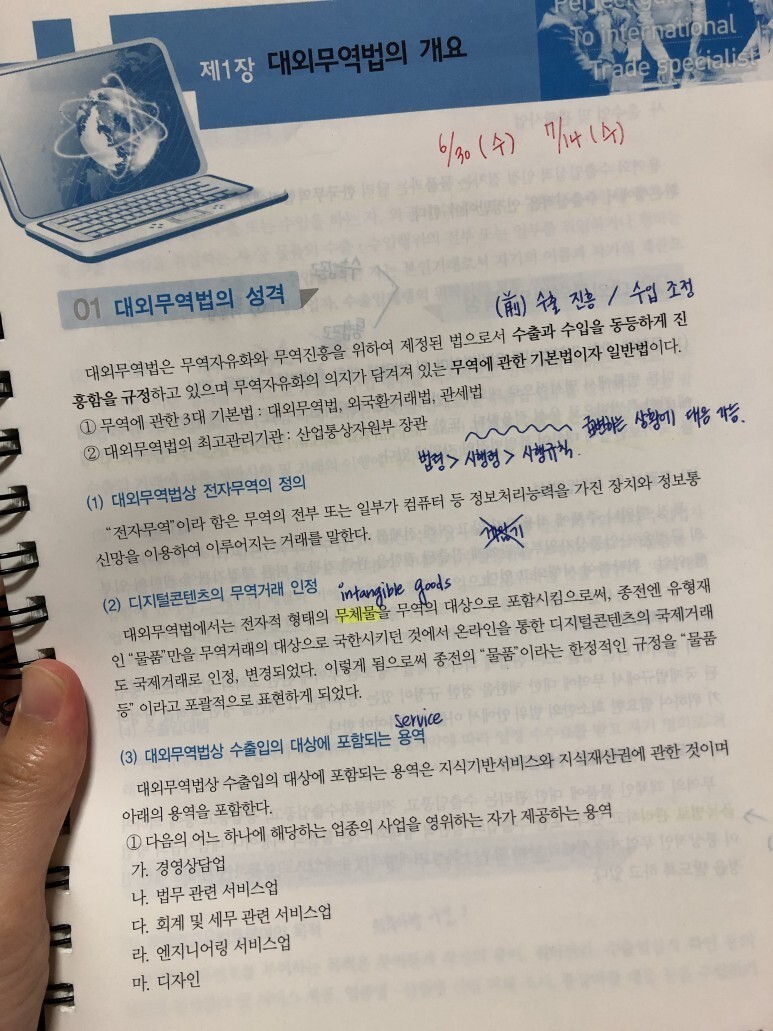 Perfect
To International
Trade Specialist
제1장 대외무역법의 개요
6/30 (수) 7/14 (수)
01 대외무역법의 성격
(前) 수출 진흥 / 수입 조정
대외무역법은 무역자유화와 무역진흥을 위하여 제정된 법으로서 수출과 수입을 동등하게 진
흥함을 규정하고 있으며 무역자유화의 의지가 담겨져 있는 무역에 관한 기본법이자 일반법이다.
① 무역에 관한 3대 기본법 : 대외무역법, 외국환거래법, 관세법
② 대외무역법의 최고관리기관 : 산업통상자원부 장관
급변하는 상황에 대응 가능.
법령 > 시행령 > 시행규칙.
(1) 대외무역법상 전자무역의 정의
“전자무역”이라 함은 무역의 전부 또는 일부가 컴퓨터 등 정보처리능력을 가진 장치와 정보통
신망을 이용하여 이루어지는 거래를 말한다.
(2) 디지털콘텐츠의 무역거래 인정
intangible goods
대외무역법에서는 전자적 형태의 무체물을 무역의 대상으로 포함시킴으로써, 종전엔 유형재
인 “물품”만을 무역거래의 대상으로 국한시키던 것에서 온라인을 통한 디지털콘텐츠의 국제거래
도 국제거래로 인정, 변경되었다. 이렇게 됨으로써 종전의 “물품”이라는 한정적인 규정을 “물품
등” 이라고 포괄적으로 표현하게 되었다.
service
(3) 대외무역법상 수출입의 대상에 포함되는 용역
대외무역법상 수출입의 대상에 포함되는 용역은 지식기반서비스와 지식재산권에 관한 것이며
아래의 용역을 포함한다.
① 다음의 어느 하나에 해당하는 업종의 사업을 영위하는 자가 제공하는 용역
가. 경영상담업
나. 법무 관련 서비스업
다. 회계 및 세무 관련 서비스업
라. 엔지니어링 서비스업
마. 디자인